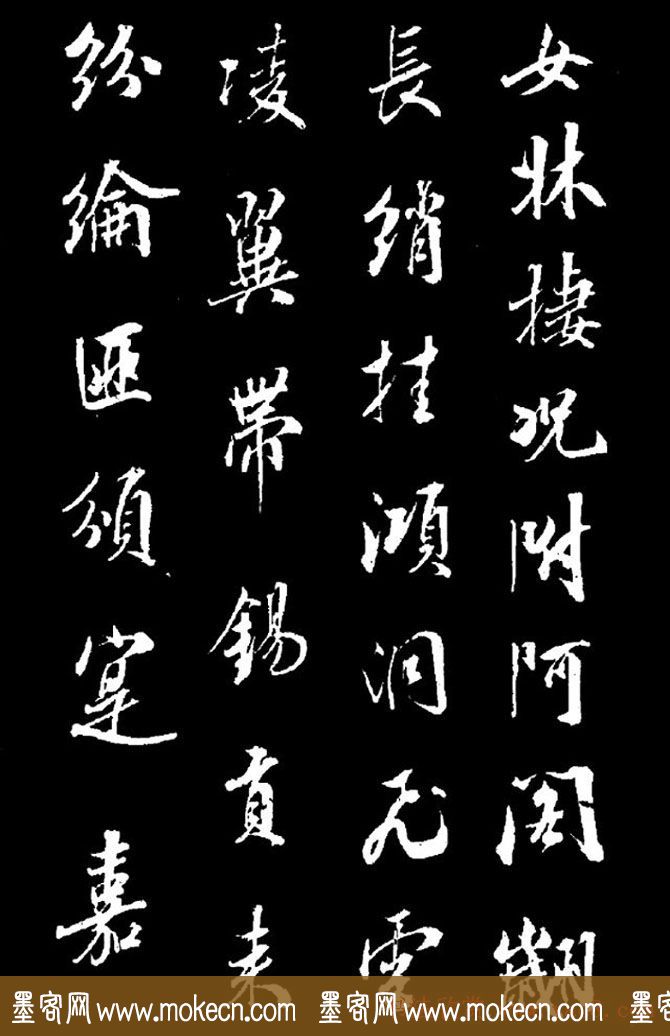 女牀棲況附阿閣翽
長綃挂澒洞飛雲
凌翼帶錫貢
紛綸匪頒寔嘉
墨客网 www.mokecn.com 墨客网 www.mokecn.com 墨客